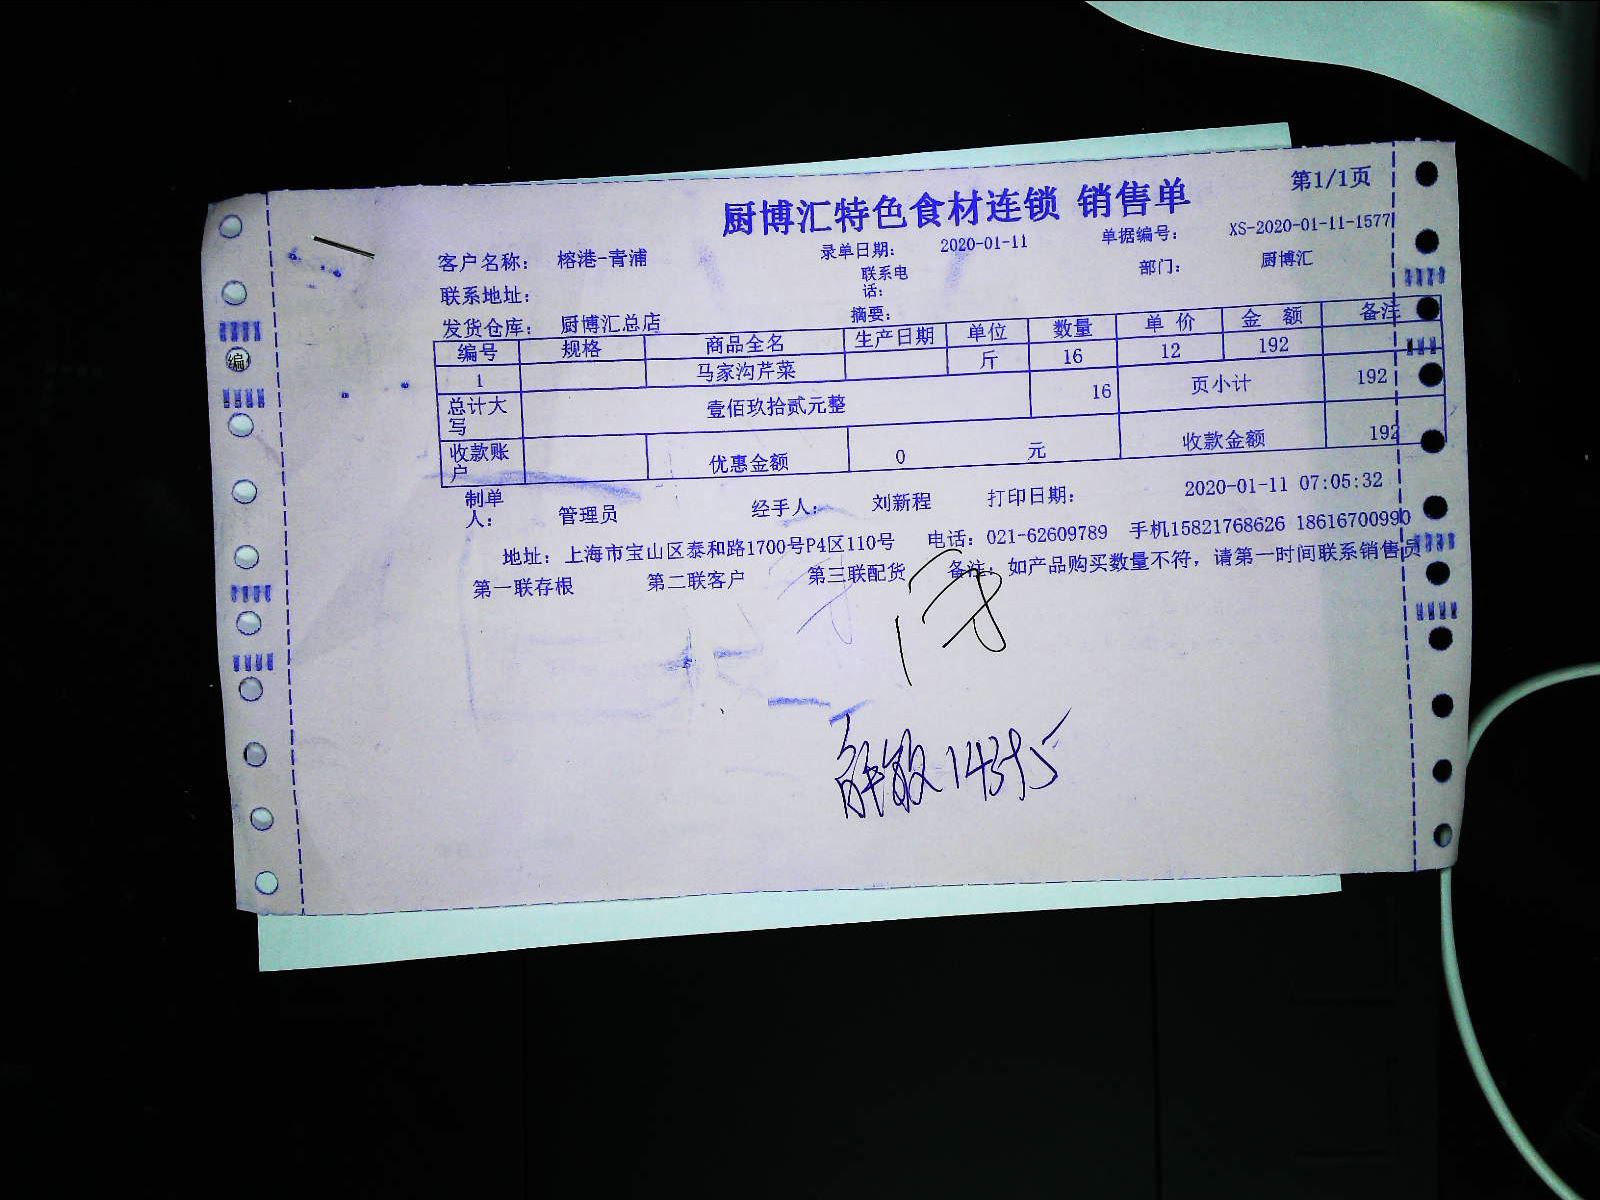 第1/1页
厨博汇特色食材连锁 销售单
客户名称： 榕港-青浦 录单日期： 2020-01-11 单据编号： XS-2020-01-11-1577
联系地址： 联系电话： 部门： 厨博汇
发货仓库： 厨博汇总店 摘要：
编号 规格 商品全名 生产日期 单位 数量 单 价 金 额 备注
1 马家沟芹菜 斤 16 12 192
总计大写 壹佰玖拾贰元整 16 页小计 192
收款账户 优惠金额 0 元 收款金额 192
制单人： 管理员 经手人： 刘新程 打印日期： 2020-01-11 07:05:32
地址：上海市宝山区泰和路1700号P4区110号 电话：021-62609789 手机15821768626 18616700990
第一联存根 第二联客户 第三联配货 备注：如产品购买数量不符，请第一时间联系销售员
编